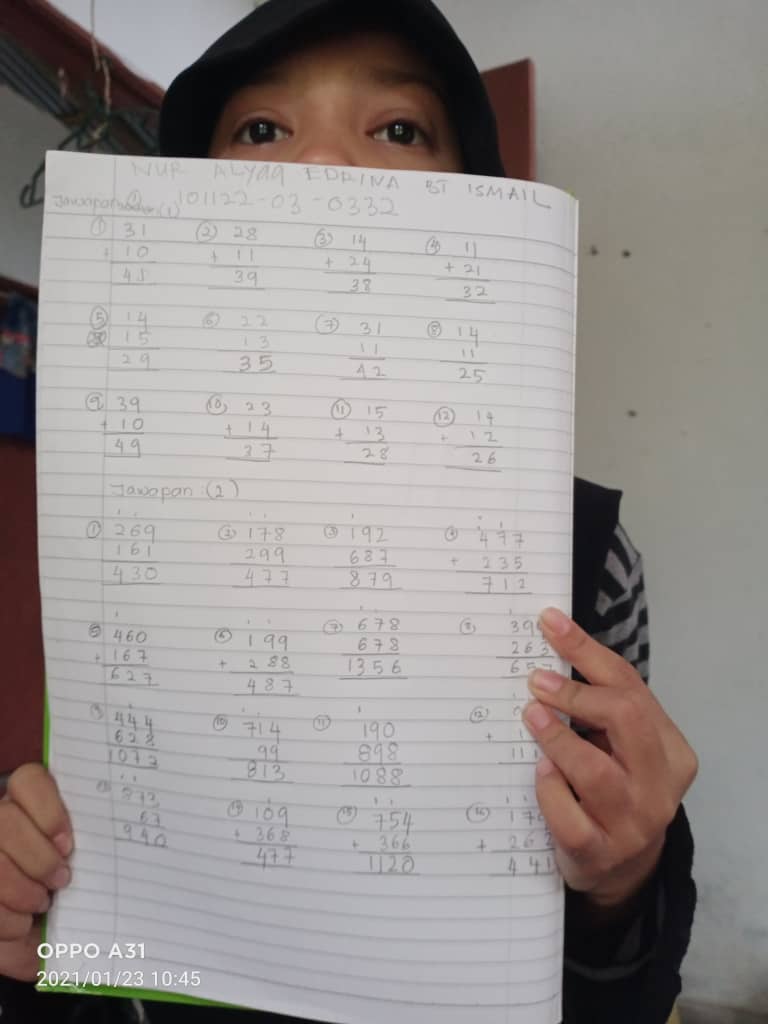 NUR ALYAA EDRINA BT ISMAIL
Jawapan (1) 101122-03-0332
① 31 ② 28 ③ 14 ④ 11
+ 10 + 11 + 24 + 21
41 39 38 32
⑤ 14 ⑥ 22 ⑦ 31 ⑧ 14
15 13 11 11
29 35 42 25
⑨ 39 ⑩ 23 ⑪ 15 ⑫ 14
+ 10 + 14 + 13 + 12
49 37 28 26
Jawapan :(2)
① 269 ② 178 ③ 192 ④ 477
161 299 687 + 235
430 477 879 712
⑤ 460 ⑥ 199 ⑦ 678 ⑧
+ 167 + 288 678 263
627 487 1356
⑨ 444 ⑩ 714 ⑪ 190 ⑫
628 99 898 +
1072 813 1088
⑬ 873 ⑭ 109 ⑮ 754 ⑯
67 + 368 + 366 +
940 477 1120 441
OPPO A31
2021/01/23 10:45